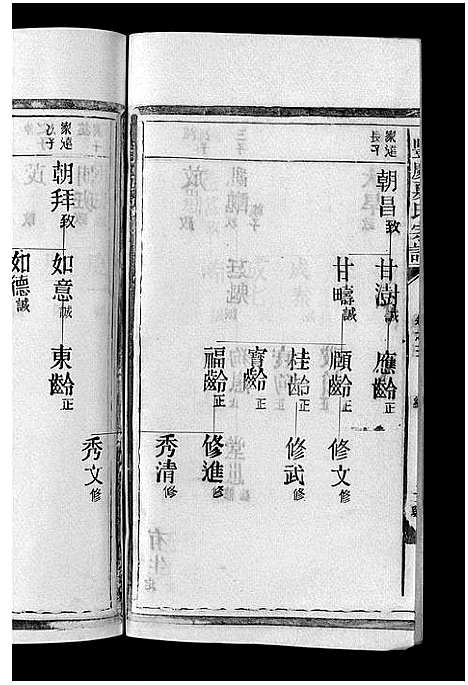 家達長子
朝昌致
甘澍誠
應齡正
甘疇誠
願齡正
修文修
桂齡正
修武修
寶齡正
福齡正
修進修
秀清修
家達次子
朝拜致
如意誠
東齡正
秀文修
如德誠